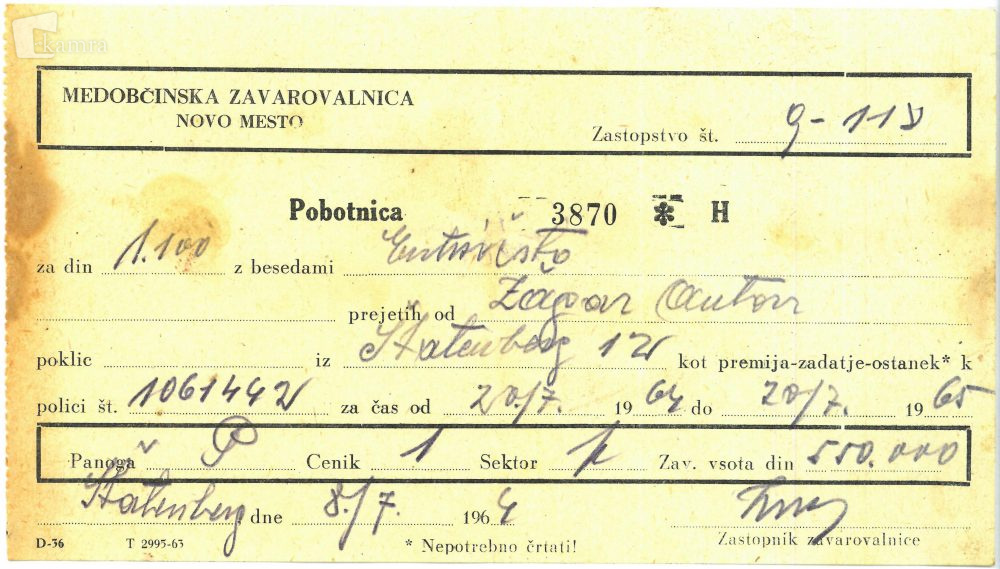 kamra
MEDOBČINSKA ZAVAROVALNICA
NOVO MESTO
Zastopstvo št. 9-118
Pobotnica 3870 * H
za din 1.100 z besedami
prejetih od Žagar Anton
poklic iz Štatenberg 12 kot premija-zadatje-ostanek* k
polici št. 1061442 za čas od 20./7. 1964 do 20./7. 1965
Panoga P Cenik 1 Sektor p Zav. vsota din 550.000
Štatenberg, dne 8./7. 1964
Zastopnik zavarovalnice
D-36 T 2995-63 * Nepotrebno črtati!